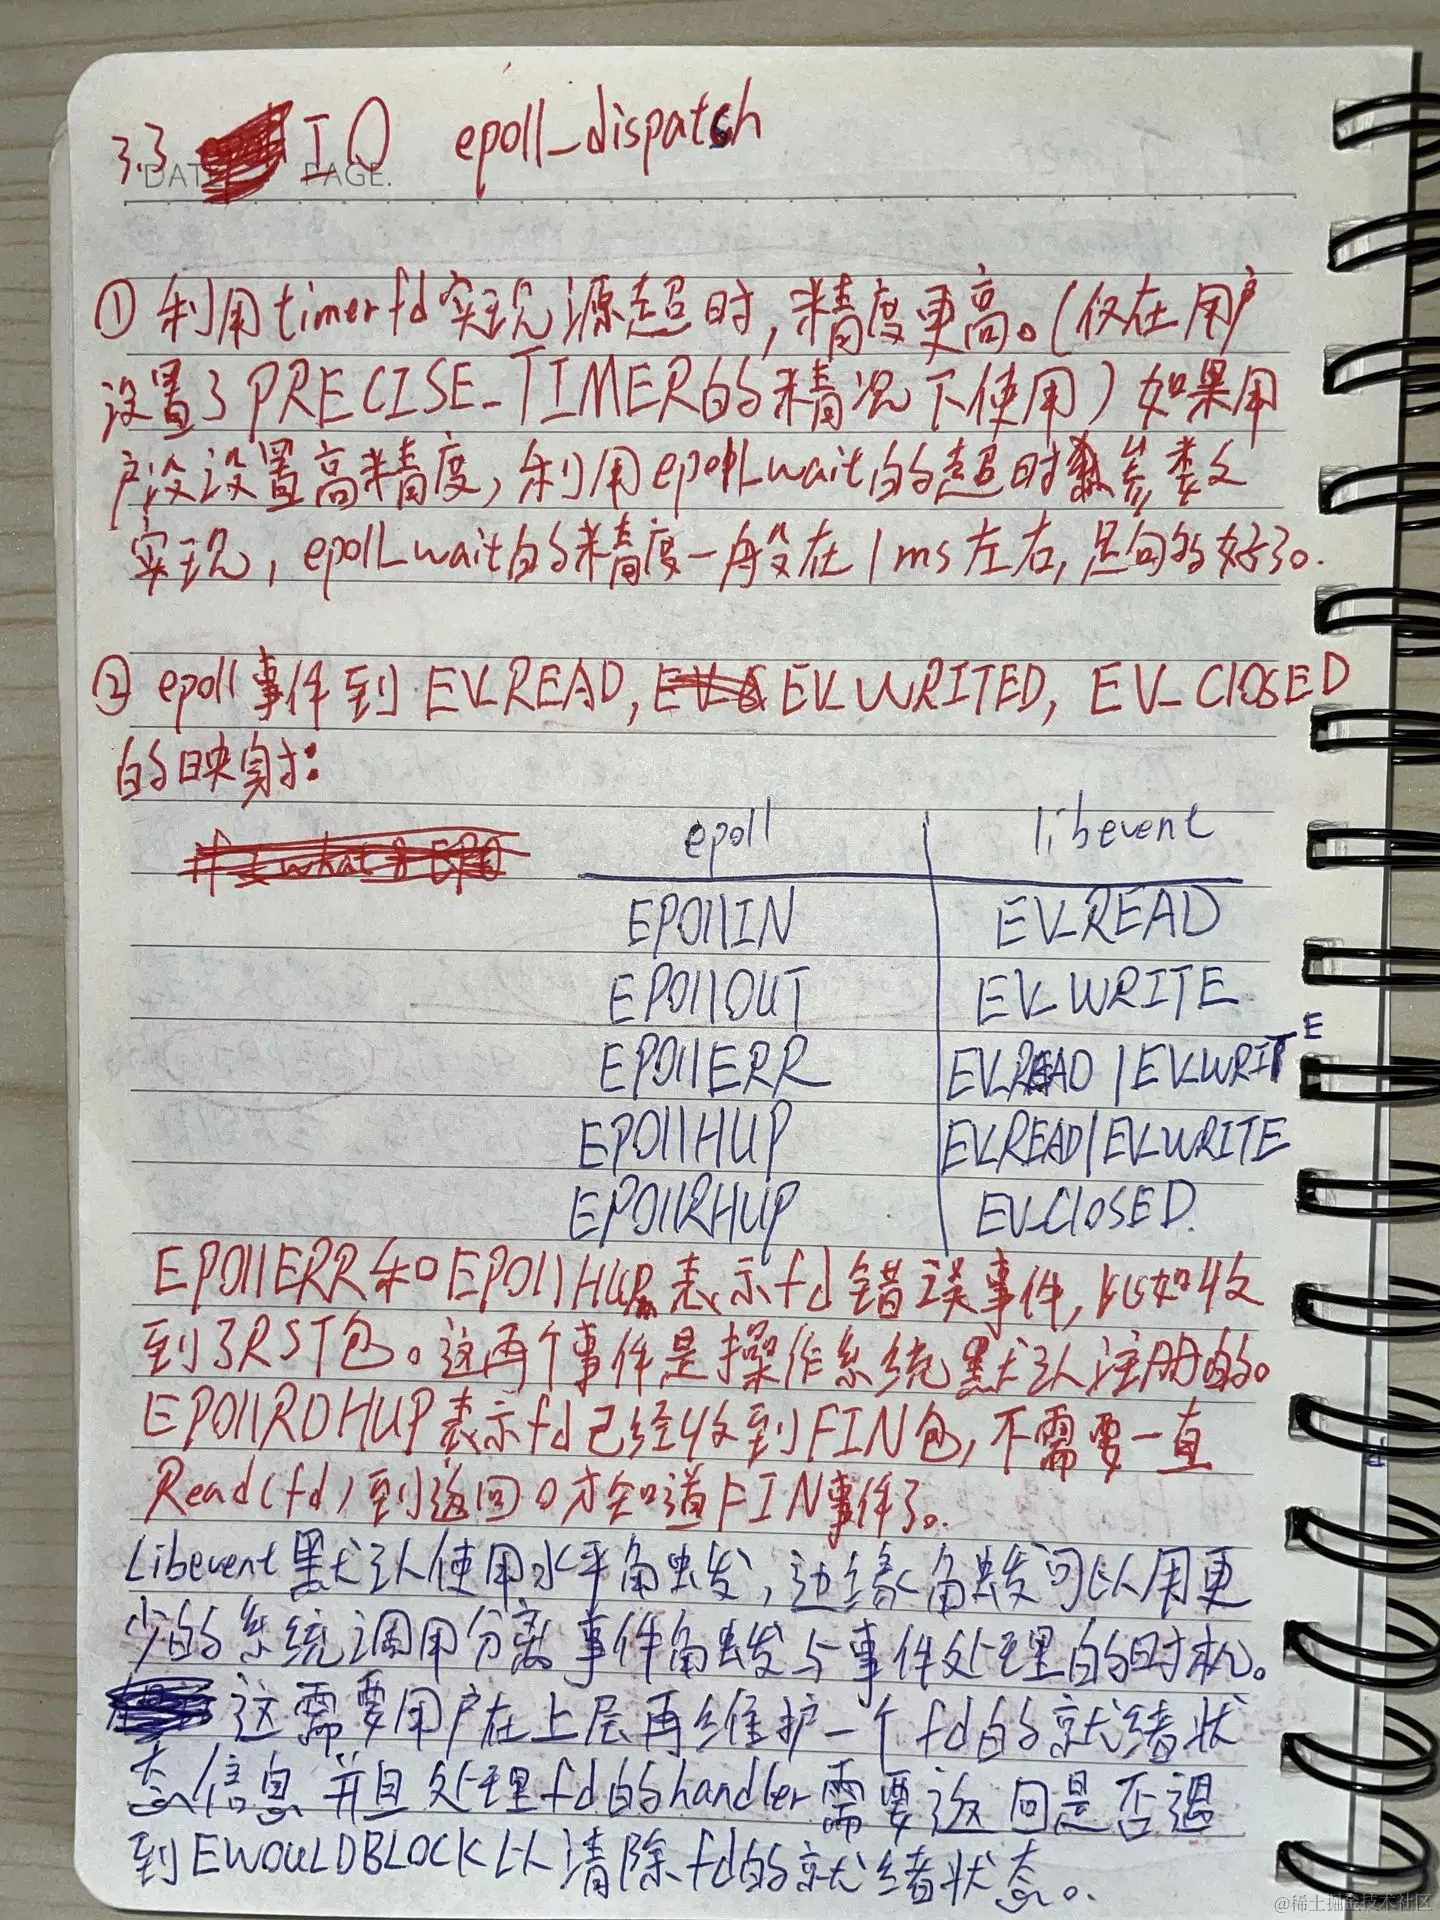 3.3 IO epoll_dispatch
DATE PAGE.
① 利用timerfd实现源超时,精度更高。(仅在用户
设置了PRECISE_TIMER的精况下使用)如果用
户没设置高精度,利用epoll_wait的超时参数
实现,epoll_wait的精度一般在1ms左右,足够的好了。
② epoll事件到 EV_READ, EV_WRITED, EV_ClOSED
的映射:
epoll libevent
EPOllIN EV_READ
EPOllOUT EV_WRITE
EPOllERR EV_READ | EV_WRITE
EPOllHUP EV_READ|EV_WRITE
EPOllRHUP EV_ClOSED.
EPOllERR和EPOllHUP表示fd错误事件,比如收
到了RST包。这两个事件是操作系统默认注册的。
EPOllRDHUP表示fd已经收到FIN包,不需要一直
Read(fd)到返回0才知道FIN事件了。
Libevent默认使用水平触发,边缘触发可以用更
少的系统调用分离事件触发与事件处理的时机。
这需要用户在上层再维护一个fd的就绪状
态信息并且处理fd的handler需要返回是否遇
到EWOULDBLOCK以清除fd的就绪状态。
@稀土掘金技术社区